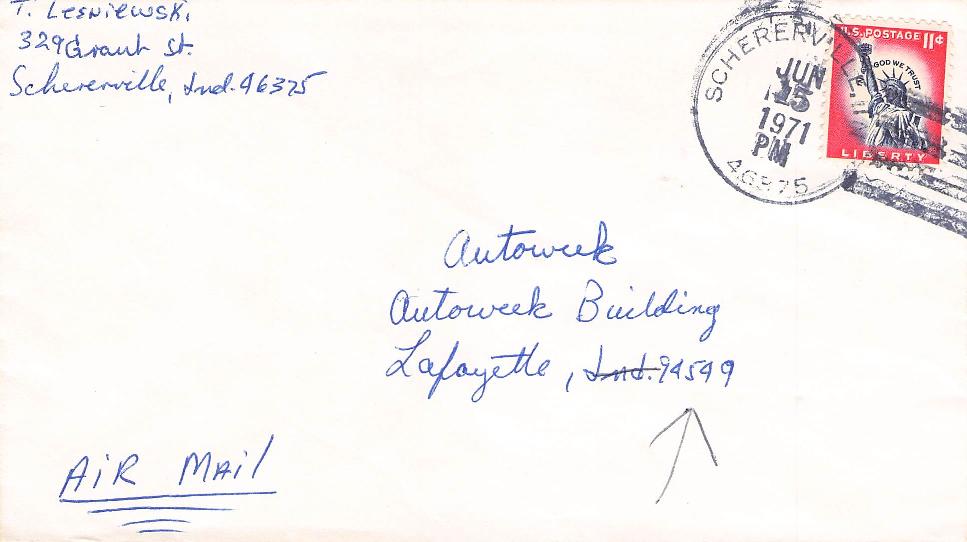 T. Lesniewski
329 Grant St.
Schererville, Ind. 46375
SCHERERVILLE, IN
JUN
15
1971
PM
46375
U.S. POSTAGE 11¢
IN GOD WE TRUST
LIBERTY
Autoweek
Autoweek Building
Lafayette, Ind. 94549
AIR MAIL